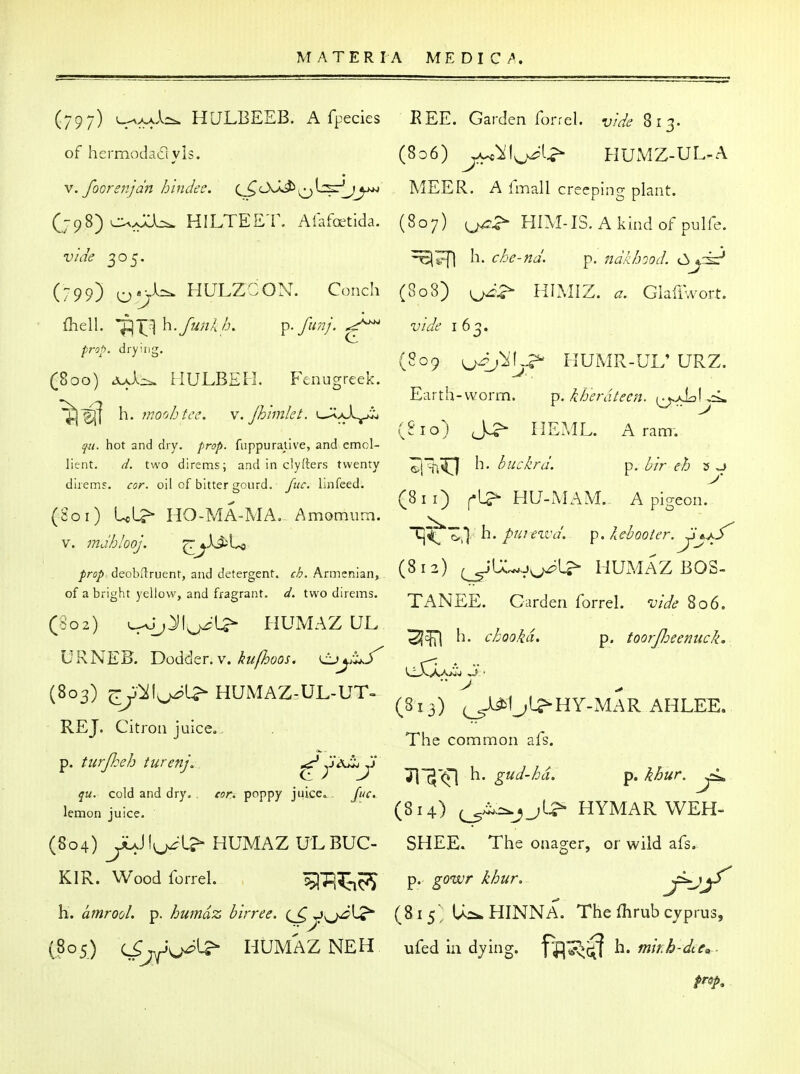 MATERIA MEDICA.
(797) حلبيب HULBEEB. A ſpecies
of hermodactyls.
v. foorenjan hindee. سورنجان هندي
(798) حلتيت HILTEET. Aſafœtida.
vide 305.
(799) حلزون HULZOON. Conch
ſhell. h. funkh. p. funj. سنج
prop. drying.
(800) حلبه HULBEH. Fenugreek.
h. moohtee. v. ſhimlet. شمليت
qu. hot and dry. prop. ſuppurative, and emol-
lient. d. two direms; and in clyſters twenty
direms. cor. oil of bitter gourd. ſuc. linſeed.
(801) حاما HO-MA-MA. Amomum.
v. mahlooj. ماهلوج
prop. deobſtruent, and detergent. ch. Armenian,
of a bright yellow, and fragrant. d. two direms.
(802) حامض الارنب HUMAZ UL
URNEB. Dodder. v. kuſhoos. كشوث
(803) حامض الاترج HUMAZ-UL-UT-
REJ. Citron juice.
p. turſheh turenj. ترشه ترنج
qu. cold and dry. cor. poppy juice. ſuc.
lemon juice.
(804) حامض البقر HUMAZ UL BUC-
KIR. Wood ſorrel.
h. âmrool. p. humâz birree. حامض بري
(805) حامض نهري HUMAZ NEH
REE. Garden ſorrel. vide 813.
(806) حامض الامير HUMZ-UL-A
MEER. A ſmall creeping plant.
(807) حمص HIM-IS. A kind of pulſe.
h. che-nâ. p. nâkhood. نخود
(808) حمض HIMIZ. a. Glaſſwort.
vide 163.
(809 حمر الارض HUMR-UL' URZ.
Earth-worm. p. kherâteen. خراطين
(810) حمل HEML. A ram.
h. buckrâ. p. bir eh بره
(811) حمام HU-MAM. A pigeon.
h. purewâ. p. kebooter. كبوتر
(812) حامض بوستاني HUMAZ BOS-
TANEE. Garden ſorrel. vide 806.
h. chookâ. p. toorſheenuck.
ترشينك
(813) حمار اهلي HY-MAR AHLEE.
The common aſs.
h. gud-hâ. p. khur. خر
(814) حمار وحشي HYMAR WEH-
SHEE. The onager, or wild aſs.
p. gowr khur. گورخر
(815) حنا HINNA. The ſhrub cyprus,
uſed in dying. h. minh-dee.
prop.